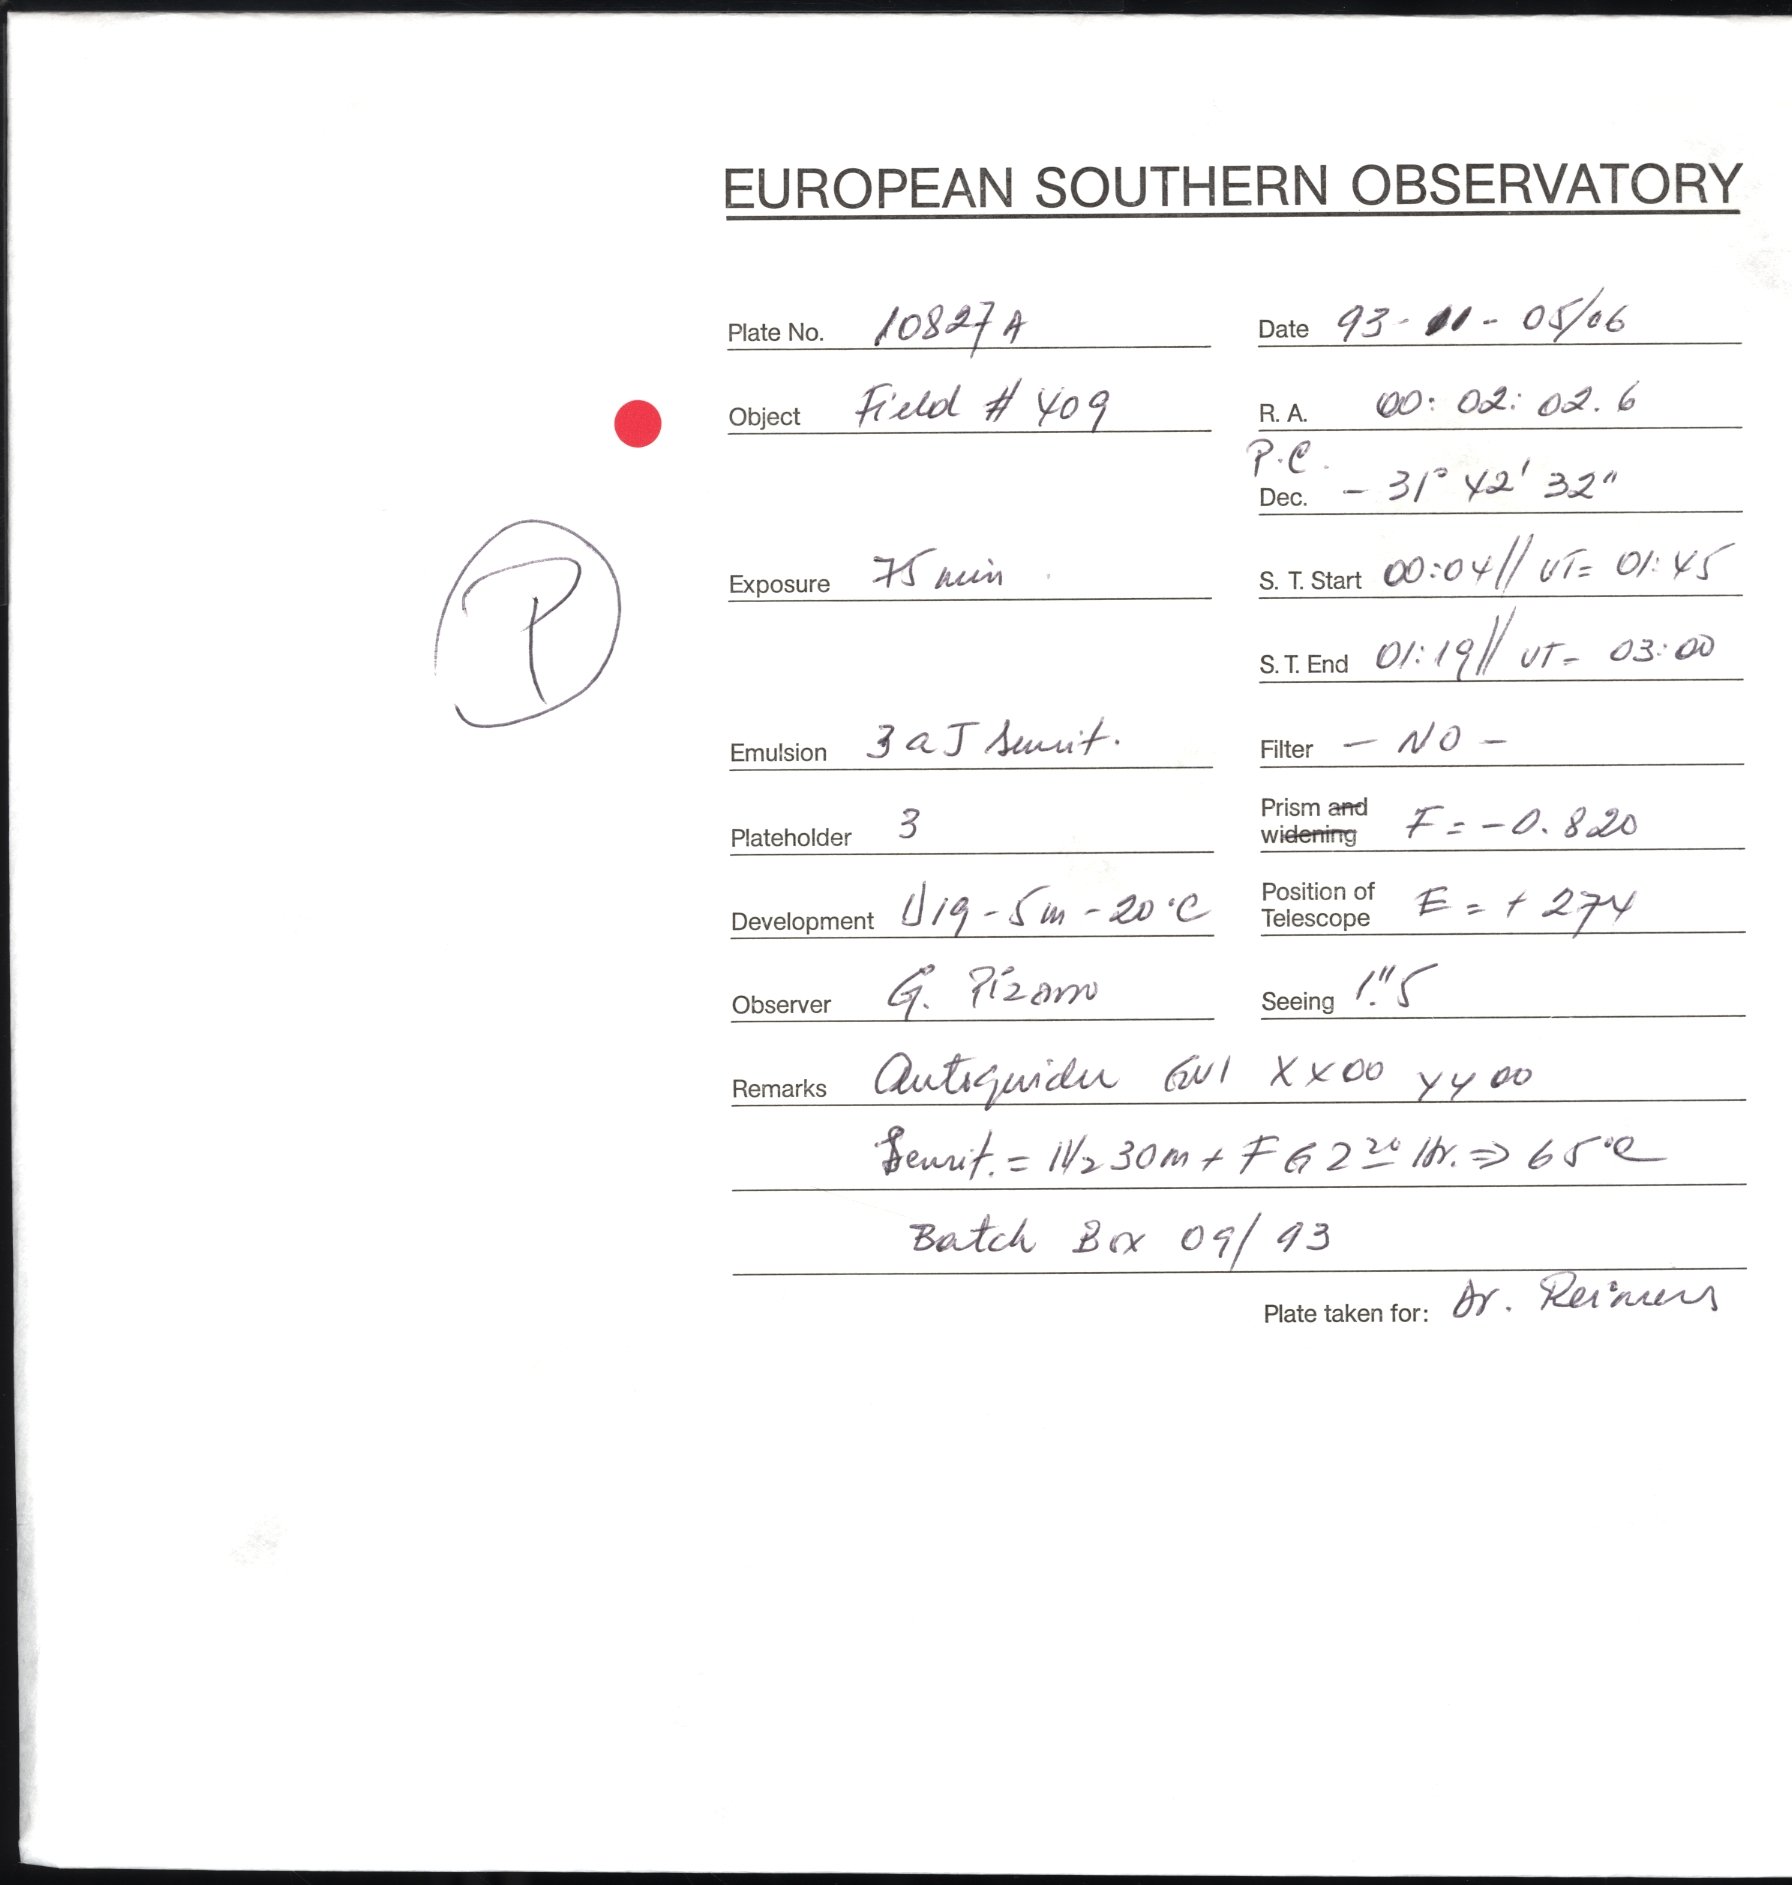 EUROPEAN SOUTHERN OBSERVATORY
Plate No. 10827A
Date 93-11-05/06
Object Field # 409
R. A. 00: 02: 02.6
P.C.
Dec. - 31° 42' 32"
P
Exposure 75 min
S. T. Start 00:04// UT= 01:45
S. T. End 01:19// UT= 03:00
Emulsion 3aJ Sensit.
Filter - NO -
Plateholder 3
Prism and widening F = -0.820
Development D19 - 5m - 20°C
Position of Telescope E = + 274
Observer G. Pizarro
Seeing 1."5
Remarks Autoguider GV1 XX00 YY00
Sensit. = H2 30m + F G 2 20 Hr. ⇒ 65°C
Batch Box 09/93
Plate taken for: Dr. Reimers